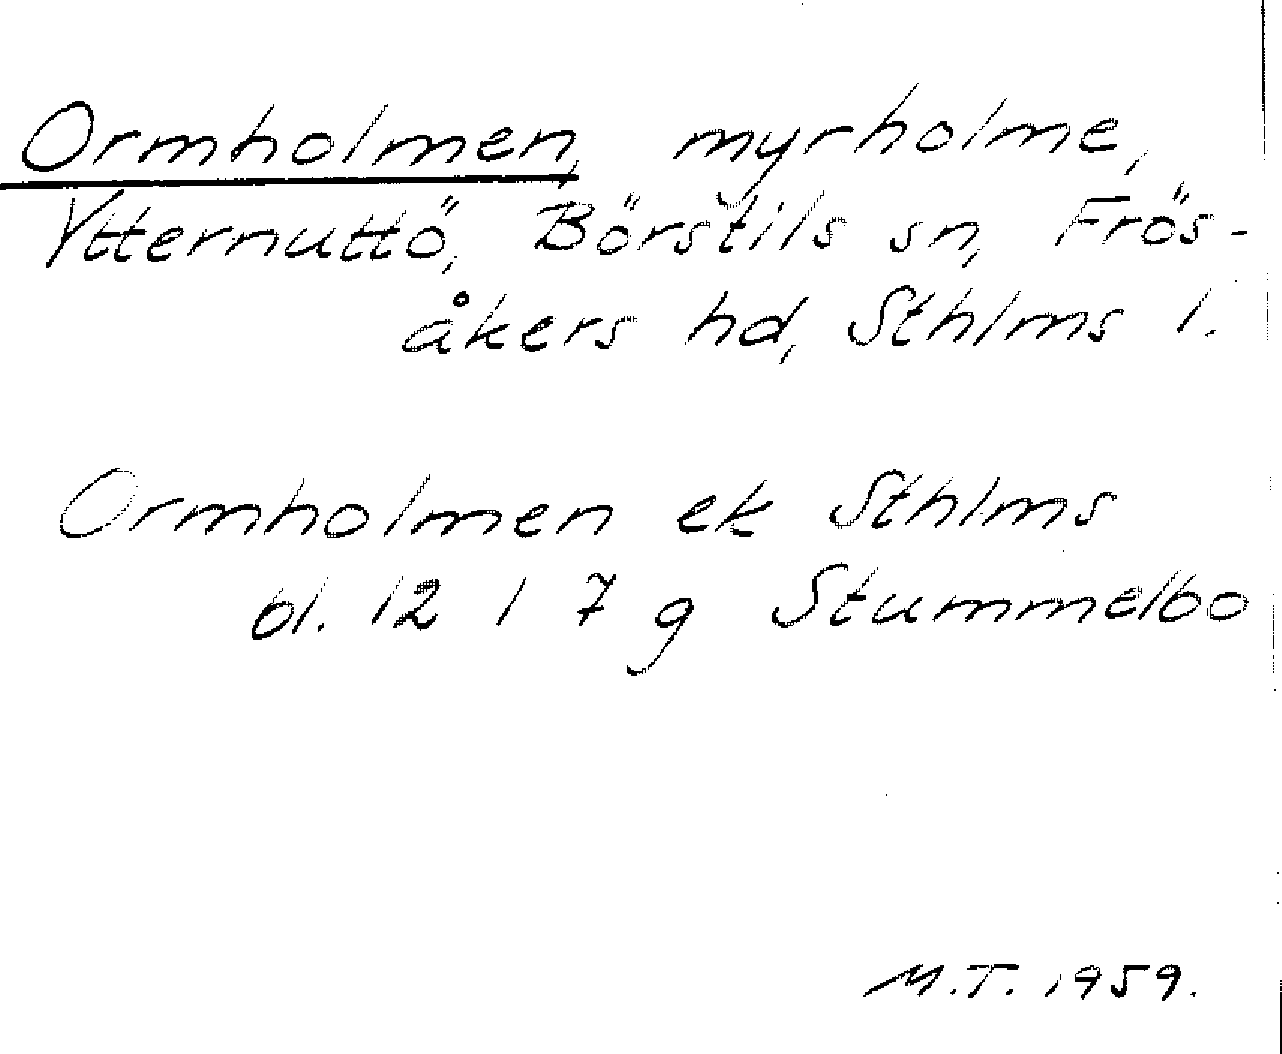 Ormholmen, myrholme,
Ytternuttö, Börstils sn, Frös-
åkers hd, Sthlms l.
Ormholmen ek Sthlms
bl. 12 I 7 g Stummelbo
M.T. 1959.